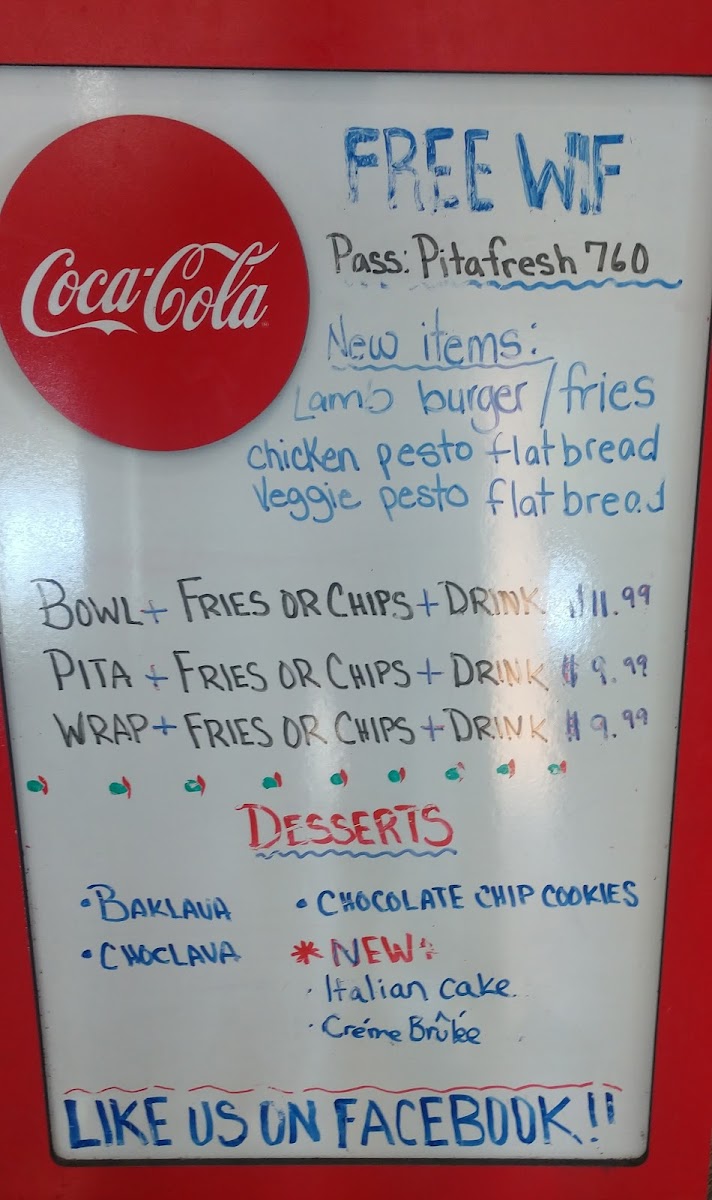 Coca-Cola
FREE WIF
Pass: Pitafresh 760
New items:
Lamb burger/fries
chicken pesto flatbread
Veggie pesto flatbread
BOWL + FRIES OR CHIPS + DRINK $11.99
PITA + FRIES OR CHIPS + DRINK $9.99
WRAP + FRIES OR CHIPS + DRINK $9.99
DESSERTS
• BAKLAVA
• CHOCLAVA
• CHOCOLATE CHIP COOKIES
* NEW:
· Italian Cake
· Créme Brûlée
LIKE US ON FACEBOOK!!